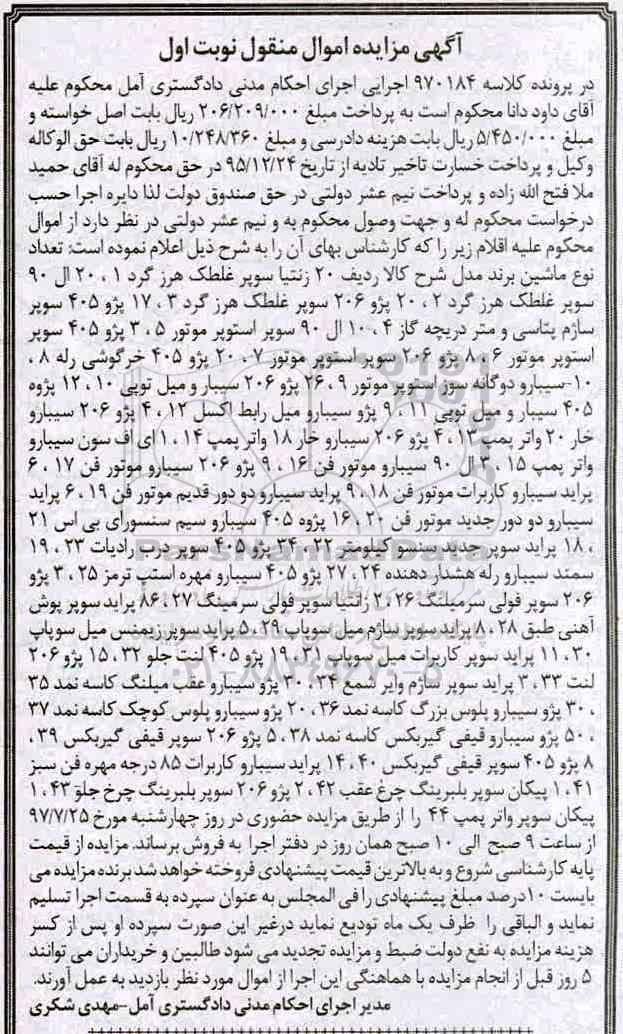 آگهی مزایده اموال منقول نوبت اول
در پرونده کلاسه ۹۷۰۱۸۴ اجرایی اجرای احکام مدنی دادگستری آمل محکوم علیه
آقای داود دانا محکوم است به پرداخت مبلغ ۲۰۶/۲۰۹/۰۰۰ ریال بابت اصل خواسته و
مبلغ ۵/۴۵۰/۰۰۰ ریال بابت هزینه دادرسی و مبلغ ۱۰/۲۴۸/۳۶۰ ریال بابت حق الوکاله
وکیل و پرداخت خسارت تاخیر تادیه از تاریخ ۹۵/۱۲/۲۴ در حق محکوم له آقای حمید
ملا فتح الله زاده و پرداخت نیم عشر دولتی در حق صندوق دولت لذا دایره اجرا حسب
درخواست محکوم له و جهت وصول محکوم به و نیم عشر دولتی در نظر دارد از اموال
محکوم علیه اقلام زیر را که کارشناس بهای آن را به شرح ذیل اعلام نموده است: تعداد
نوع ماشین برند مدل شرح کالا ردیف ۲۰ زنتیا سوپر غلطک هرز گرد ۱ ، ۲۰ ال ۹۰
سوپر غلطک هرز گرد ۲ ، ۲۰ پژو ۲۰۶ سوپر غلطک هرز گرد ۳ ، ۱۷ پژو ۴۰۵ سوپر
سازم پتاسی و متر دریچه گاز ۴ ، ۱۰ ال ۹۰ سوپر استوپر موتور ۵ ، ۳ پژو ۴۰۵ سوپر
استوپر موتور ۶ ، ۸ پژو ۲۰۶ سوپر استوپر موتور ۷ ، ۲۰ پژو ۴۰۵ خرگوشی رله ۸ ،
۱۰-سیبارو دوگانه سوز استوپر موتور ۹ ، ۲۶ پژو ۲۰۶ سیبار و میل توپی ۱۰ ، ۱۲ پژوه
۴۰۵ سیبار و میل توپی ۱۱ ، ۹ پژو سیبارو میل رابط اکسل ۱۲ ، ۴ پژو ۲۰۶ سیبارو
خار ۲۰ واتر پمپ ۱۳ ، ۴ پژو ۲۰۶ سیبارو خار ۱۸ واتر پمپ ۱۴ ، ۱ ای اف سون سیبارو
واتر پمپ ۱۵ ، ۲ ال ۹۰ سیبارو موتور فن ۱۶ ، ۹ پژو ۲۰۶ سیبارو موتور فن ۱۷ ، ۶
پراید سیبارو کاربرات موتور فن ۱۸ ، ۹ پراید سیبارو دو دور قدیم موتور فن ۱۹ ، ۶ پراید
سیبارو دو دور جدید موتور فن ۲۰ ، ۱۶ پژوه ۴۰۵ سیبارو سیم سنسورای بی اس ۲۱
، ۱۸ پراید سوپر جدید سنسو کیلومتر ۲۲ ، ۳۴ پژو ۴۰۵ سوپر درب رادیات ۲۳ ، ۱۹
سمند سیبارو رله هشدار دهنده ۲۴ ، ۲۷ پژو ۴۰۵ سیبارو مهره استپ ترمز ۲۵ ، ۳ پژو
۲۰۶ سوپر فولی سرمیلنگ ۲۶ ، ۲ زانتیا سوپر فولی سرمینگ ۲۷ ، ۸۶ پراید سوپر پوش
آهنی طبق ۲۸ ، ۸ پراید سوپر سازم میل سوپاپ ۲۹ ، ۵ پراید سوپر زیمنس میل سوپاپ
۳۰ ، ۱۱ پراید سوپر کاربرات میل سوپاپ ۳۱ ، ۱۹ پژو ۴۰۵ لنت جلو ۳۲ ، ۱۵ پژو ۲۰۶
لنت ۳۳ ، ۳ پراید سوپر سازم وایر شمع ۳۴ ، ۳۰ پژو سیبارو عقب میلنگ کاسه نمد ۳۵
، ۳۰ پژو سیبارو پلوس بزرگ کاسه نمد ۳۶ ، ۲۰ پژو سیبارو پلوس کوچک کاسه نمد ۳۷
، ۵۰ پژو سیبارو قیفی گیربکس کاسه نمد ۳۸ ، ۵ پژو ۲۰۶ سوپر قیفی گیربکس ۳۹ ،
۸ پژو ۴۰۵ سوپر قیفی گیربکس ۴۰ ، ۱۴ پراید سیبارو کاربرات ۸۵ درجه مهره فن سبز
۴۱ ، ۱ پیکان سوپر بلبرینگ چرخ عقب ۴۲ ، ۲ پژو ۲۰۶ سوپر بلبرینگ چرخ جلو ۴۳ ، ۱
پیکان سوپر واتر پمپ ۴۴ را از طریق مزایده حضوری در روز چهارشنبه مورخ ۹۷/۷/۲۵
از ساعت ۹ صبح الی ۱۰ صبح همان روز در دفتر اجرا به فروش برساند. مزایده از قیمت
پایه کارشناسی شروع و به بالاترین قیمت پیشنهادی فروخته خواهد شد برنده مزایده می
بایست ۱۰درصد مبلغ پیشنهادی را فی المجلس به عنوان سپرده به قسمت اجرا تسلیم
نماید و الباقی را ظرف یک ماه تودیع نماید درغیر این صورت سپرده او پس از کسر
هزینه مزایده به نفع دولت ضبط و مزایده تجدید می شود طالبین و خریداران می توانند
۵ روز قبل از انجام مزایده با هماهنگی این اجرا از اموال مورد نظر بازدید به عمل آورند.
مدیر اجرای احکام مدنی دادگستری آمل-مهدی شکری